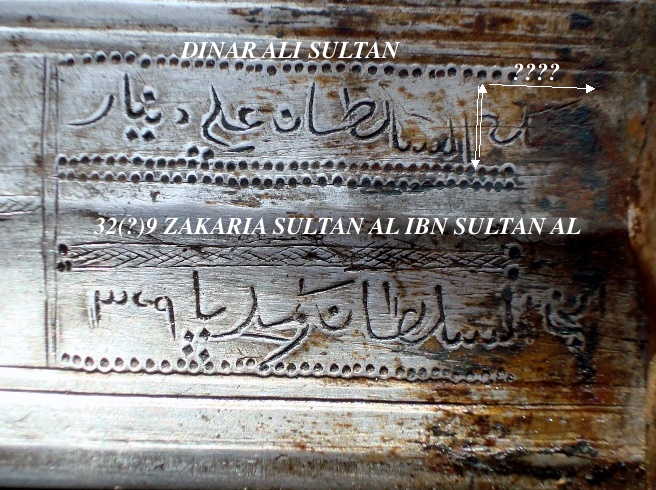 DINAR ALI SULTAN
????
السلطان علي دينار
32(?)9 ZAKARIA SULTAN AL IBN SULTAN AL
ابن السلطان زكريا